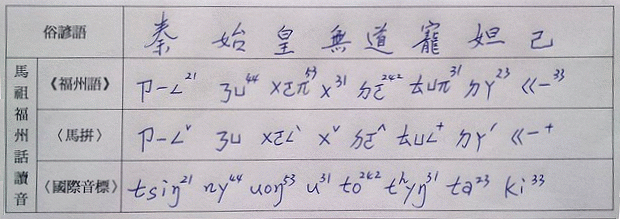 俗諺語 秦 始 皇 無 道 寵 妲 己
馬祖福州話讀音
《福州語》 ㄗㄧㄥ²¹ ㄋㄩ⁴⁴ ㄨㄛ⁵³ ㄨ³¹ ㄉㄛ²⁴² ㄊㄩ³¹ ㄉㄚ²³ ㄍㄧ³³
〈馬拼〉 ㄗㄧㄥˇ ㄋㄩ ㄨㄛㄥˋ ㄨˇ ㄉㄛˆ ㄊㄩㄥ⁺ ㄉㄚˊ ㄍㄧ⁺
〈國際音標〉 tsiŋ²¹ ny⁴⁴ uoŋ⁵³ u³¹ to²⁴² tʰyŋ³¹ ta²³ ki³³